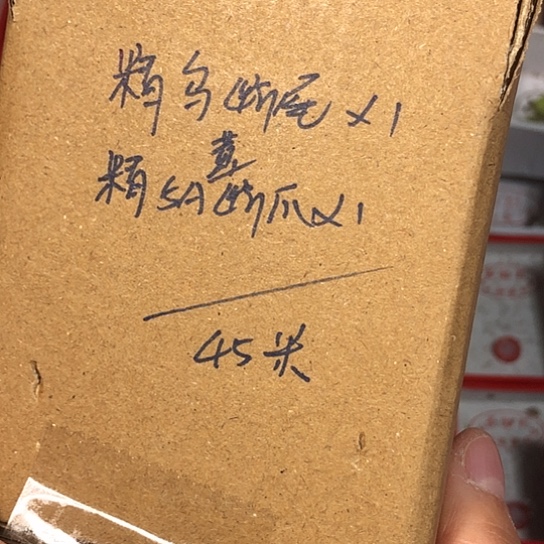 精乌断尾 x1
精SA断爪x1
45米